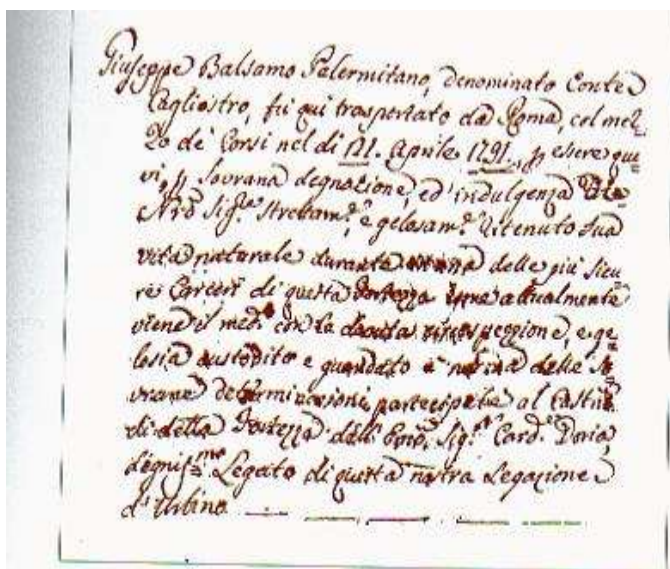 Giuseppe Balsamo Palermitano, denominato Conte
Cagliostro, fu qui trasportato da Roma, col mez=
zo de' Corsi nel dì 21. Aprile 1791. p essere qui
vi, p Sovrana degnazione, ed' indulgenza
Nrõ Sig.e strettam.e, e gelosam.e ritenuto sua
vita naturale durante in una delle più sicu
re Carceri di questa Fortezza attualmente
viene il med. con la dovuta circospezzione, e ge=
losia custodito e guardato a norma delle So
vrane determinazioni partecipate al Castell.
di detta Fortezza dall' Emõ. Sig.r Card. Doria,
degniss.mo Legato di questa nostra Legazione
d' Urbino